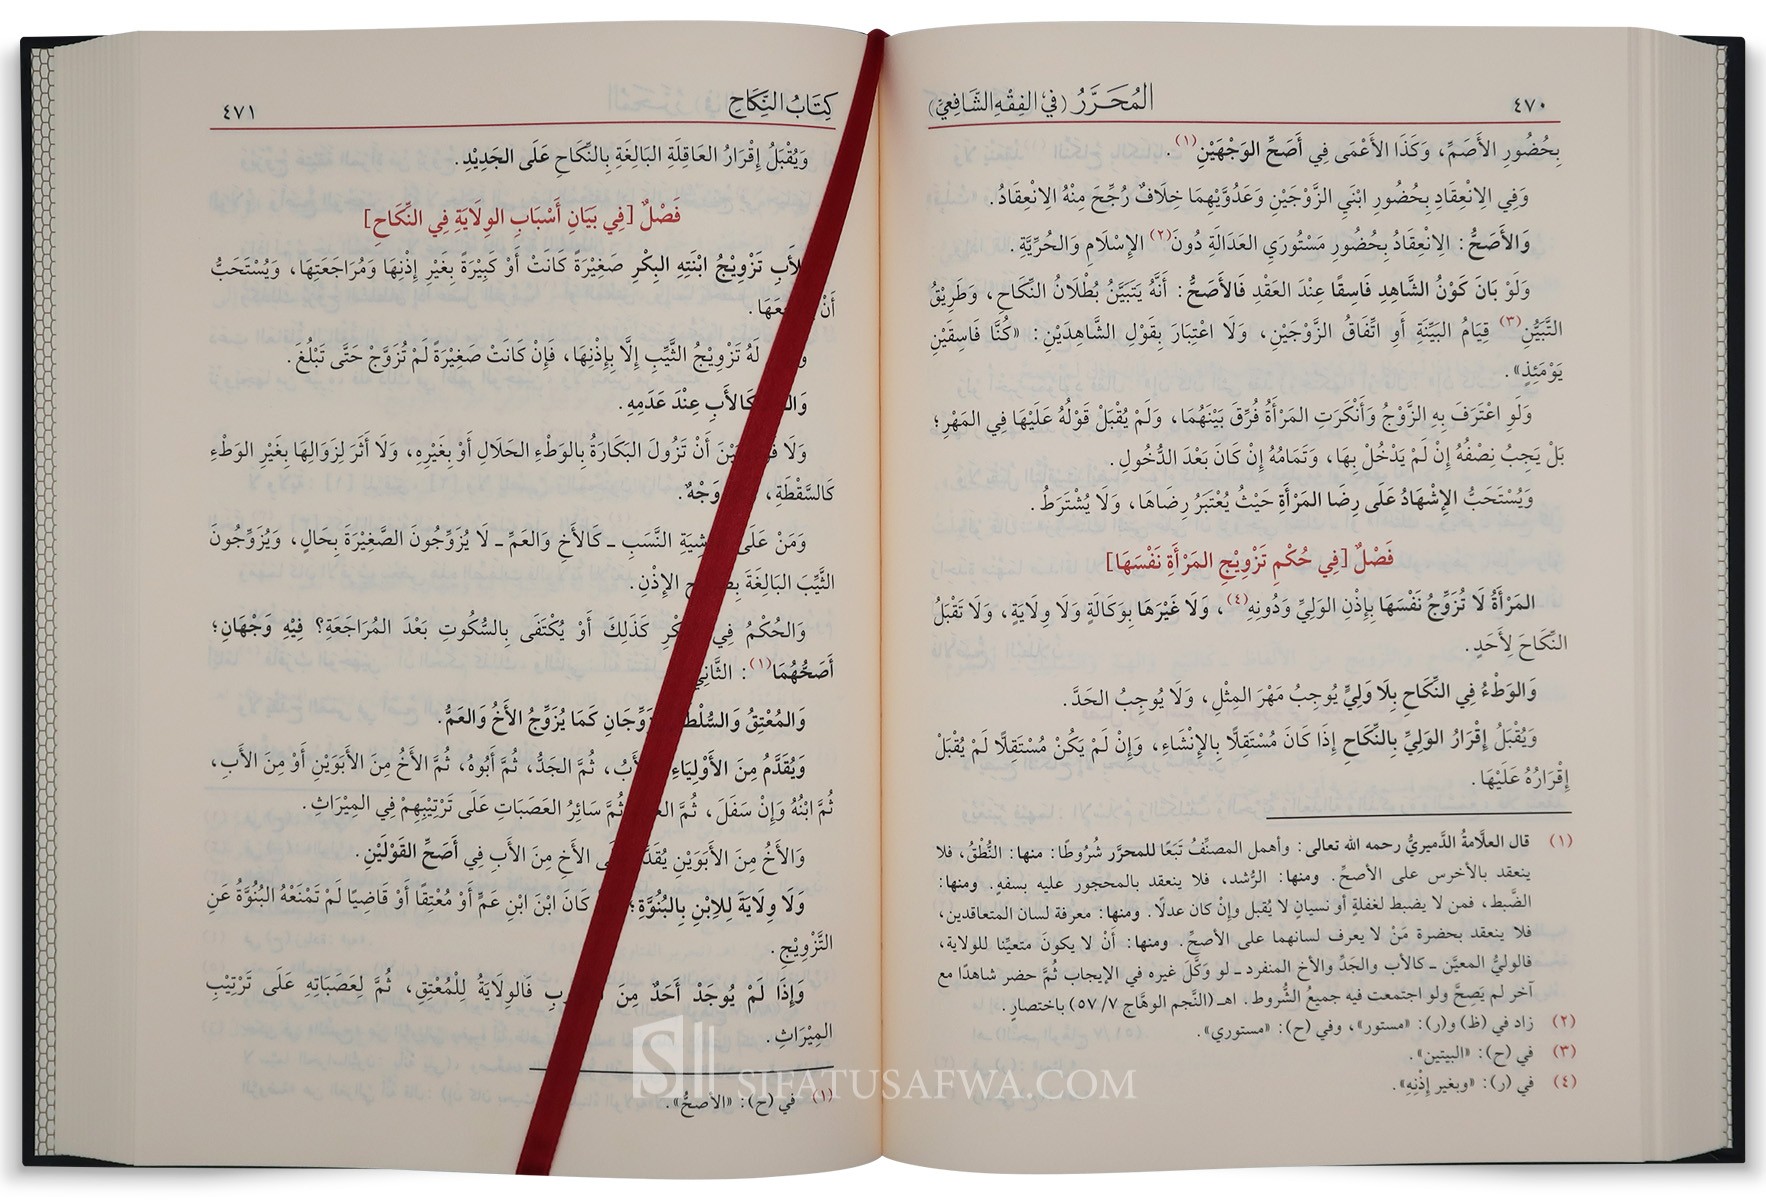 ٤٧٠
المُحَرَّرُ (في الفِقْهِ الشَّافِعِيّ)
بِحُضُورِ الأَصَمِّ، وَكَذَا الأَعْمَى فِي أَصَحِّ الوَجْهَيْنِ(١).
وَفِي الِانْعِقَادِ بِحُضُورِ ابْنَيِ الزَّوْجَيْنِ وَعَدُوَّيْهِمَا خِلَافٌ رُجِّحَ مِنْهُ الِانْعِقَادُ.
وَالأَصَحُّ: الِانْعِقَادُ بِحُضُورِ مَسْتُورَيِ العَدَالَةِ دُونَ(٢) الإِسْلَامِ وَالحُرِّيَّةِ.
وَلَوْ بَانَ كَوْنُ الشَّاهِدِ فَاسِقًا عِنْدَ العَقْدِ فَالأَصَحُّ: أَنَّهُ يَتَبَيَّنُ بُطْلَانُ النِّكَاحِ، وَطَرِيْقُ
التَّبَيُّنِ(٣) قِيَامُ البَيِّنَةِ أَوِ اتِّفَاقُ الزَّوْجَيْنِ، وَلَا اعْتِبَارَ بِقَوْلِ الشَّاهِدَيْنِ: «كُنَّا فَاسِقَيْنِ
يَوْمَئِذٍ».
وَلَوِ اعْتَرَفَ بِهِ الزَّوْجُ وَأَنْكَرَتِ المَرْأَةُ فُرِّقَ بَيْنَهُمَا، وَلَمْ يُقْبَلْ قَوْلُهُ عَلَيْهَا فِي المَهْرِ؛
بَلْ يَجِبُ نِصْفُهُ إِنْ لَمْ يَدْخُلْ بِهَا، وَتَمَامُهُ إِنْ كَانَ بَعْدَ الدُّخُولِ.
وَيُسْتَحَبُّ الإِشْهَادُ عَلَى رِضَا المَرْأَةِ حَيْثُ يُعْتَبَرُ رِضَاهَا، وَلَا يُشْتَرَطُ.
فَصْلٌ [فِي حُكْمِ تَزْوِيْجِ المَرْأَةِ نَفْسَهَا]
المَرْأَةُ لَا تُزَوِّجُ نَفْسَهَا بِإِذْنِ الوَلِيِّ وَدُونِهِ(٤)، وَلَا غَيْرَهَا بِوَكَالَةٍ وَلَا وِلَايَةٍ، وَلَا تَقْبَلُ
النِّكَاحَ لِأَحَدٍ.
وَالوَطْءُ فِي النِّكَاحِ بِلَا وَلِيٍّ يُوجِبُ مَهْرَ المِثْلِ، وَلَا يُوجِبُ الحَدَّ.
وَيُقْبَلُ إِقْرَارُ الوَلِيِّ بِالنِّكَاحِ إِذَا كَانَ مُسْتَقِلًّا بِالإِنْشَاءِ، وَإِنْ لَمْ يَكُنْ مُسْتَقِلًّا لَمْ يُقْبَلْ
إِقْرَارُهُ عَلَيْهَا.
(١) قال العلَّامةُ الدَّميريُّ رحمه الله تعالى: وأهمل المصنِّفُ تَبَعًا للمحرَّر شُرُوطًا: منها: النُّطْقُ، فلا
ينعقد بالأخرس على الأصحِّ. ومنها: الرُّشد، فلا ينعقد بالمحجور عليه بسفهٍ. ومنها:
الضَّبط، فمن لا يضبط لغفلةٍ أو نسيان لا يُقبل وإنْ كان عدلًا. ومنها: معرفة لسان المتعاقدين،
فلا ينعقد بحضرة مَنْ لا يعرف لسانهما على الأصحِّ. ومنها: أنْ لا يكونَ متعيِّنا للولاية،
فالوليُّ المعيَّن ـ كالأب والجَدِّ والأخ المنفرد ـ لو وَكَّلَ غيره في الإيجاب ثُمَّ حضر شاهدًا مع
آخر لم يَصِحَّ ولو اجتمعت فيه جميعُ الشُّروط. اهـ (النَّجم الوهَّاج ٥٧/٧) باختصارٍ.
(٢) زاد في (ظ) و(ر): «مستور»، وفي (ح): «مستوري».
(٣) في (ح): «البيتين».
(٤) في (ر): «وبغير إِذْنِهِ».
كِتَابُ النِّكَاحِ
٤٧١
وَيُقْبَلُ إِقْرَارُ العَاقِلَةِ البَالِغَةِ بِالنِّكَاحِ عَلَى الجَدِيْدِ.
فَصْلٌ [فِي بَيَانِ أَسْبَابِ الوِلَايَةِ فِي النِّكَاحِ]
لأَبِ تَزْوِيْجُ ابْنَتِهِ البِكْرِ صَغِيْرَةً كَانَتْ أَوْ كَبِيْرَةً بِغَيْرِ إِذْنِهَا وَمُرَاجَعَتِهَا، وَيُسْتَحَبُّ
أَنْ
لَهُ تَزْوِيْجُ الثَّيِّبِ إِلَّا بِإِذْنِهَا، فَإِنْ كَانَتْ صَغِيْرَةً لَمْ تُزَوَّجْ حَتَّى تَبْلُغَ.
كَالأَبِ عِنْدَ عَدَمِهِ.
وَلَا بَيْنَ أَنْ تَزُولَ البَكَارَةُ بِالوَطْءِ الحَلَالِ أَوْ بِغَيْرِهِ، وَلَا أَثَرَ لِزَوَالِهَا بِغَيْرِ الوَطْءِ
كَالسَّقْطَةِ، وَجْهٌ.
وَمَنْ عَلَى النَّسَبِ ـ كَالأَخِ وَالعَمِّ ـ لَا يُزَوِّجُونَ الصَّغِيْرَةَ بِحَالٍ، وَيُزَوِّجُونَ
الثَّيِّبَ البَالِغَةَ الإِذْنِ.
وَالحُكْمُ فِي كَذَلِكَ أَوْ يُكْتَفَى بِالسُّكُوتِ بَعْدَ المُرَاجَعَةِ؟ فِيْهِ وَجْهَانِ؛
أَصَحُّهُمَا(١): الثَّانِي
وَالمُعْتِقُ كَمَا يُزَوِّجُ الأَخُ وَالعَمُّ.
وَيُقَدَّمُ مِنَ الأَوْلِيَاءِ ثُمَّ الجَدُّ، ثُمَّ أَبُوهُ، ثُمَّ الأَخُ مِنَ الأَبَوَيْنِ أَوْ مِنَ الأَبِ،
ثُمَّ ابْنُهُ وَإِنْ سَفَلَ، ثُمَّ ثُمَّ سَائِرُ العَصَبَاتِ عَلَى تَرْتِيْبِهِمْ فِي المِيْرَاثِ.
وَالأَخُ مِنَ الأَبَوَيْنِ الأَخِ مِنَ الأَبِ فِي أَصَحِّ القَوْلَيْنِ.
وَلَا وِلَايَةَ لِلِابْنِ بِالبُنُوَّةِ؛ كَانَ ابْنَ ابْنِ عَمٍّ أَوْ مُعْتِقًا أَوْ قَاضِيًا لَمْ تَمْنَعْهُ البُنُوَّةُ عَنِ
التَّزْوِيْجِ.
وَإِذَا لَمْ يُوجَدْ أَحَدٌ مِنَ فَالوِلَايَةُ لِلْمُعْتِقِ، ثُمَّ لِعَصَبَاتِهِ عَلَى تَرْتِيْبِ
المِيْرَاثِ.
(١) في (ح): «الأصحُّ».
SIFATUSAFWA.COM